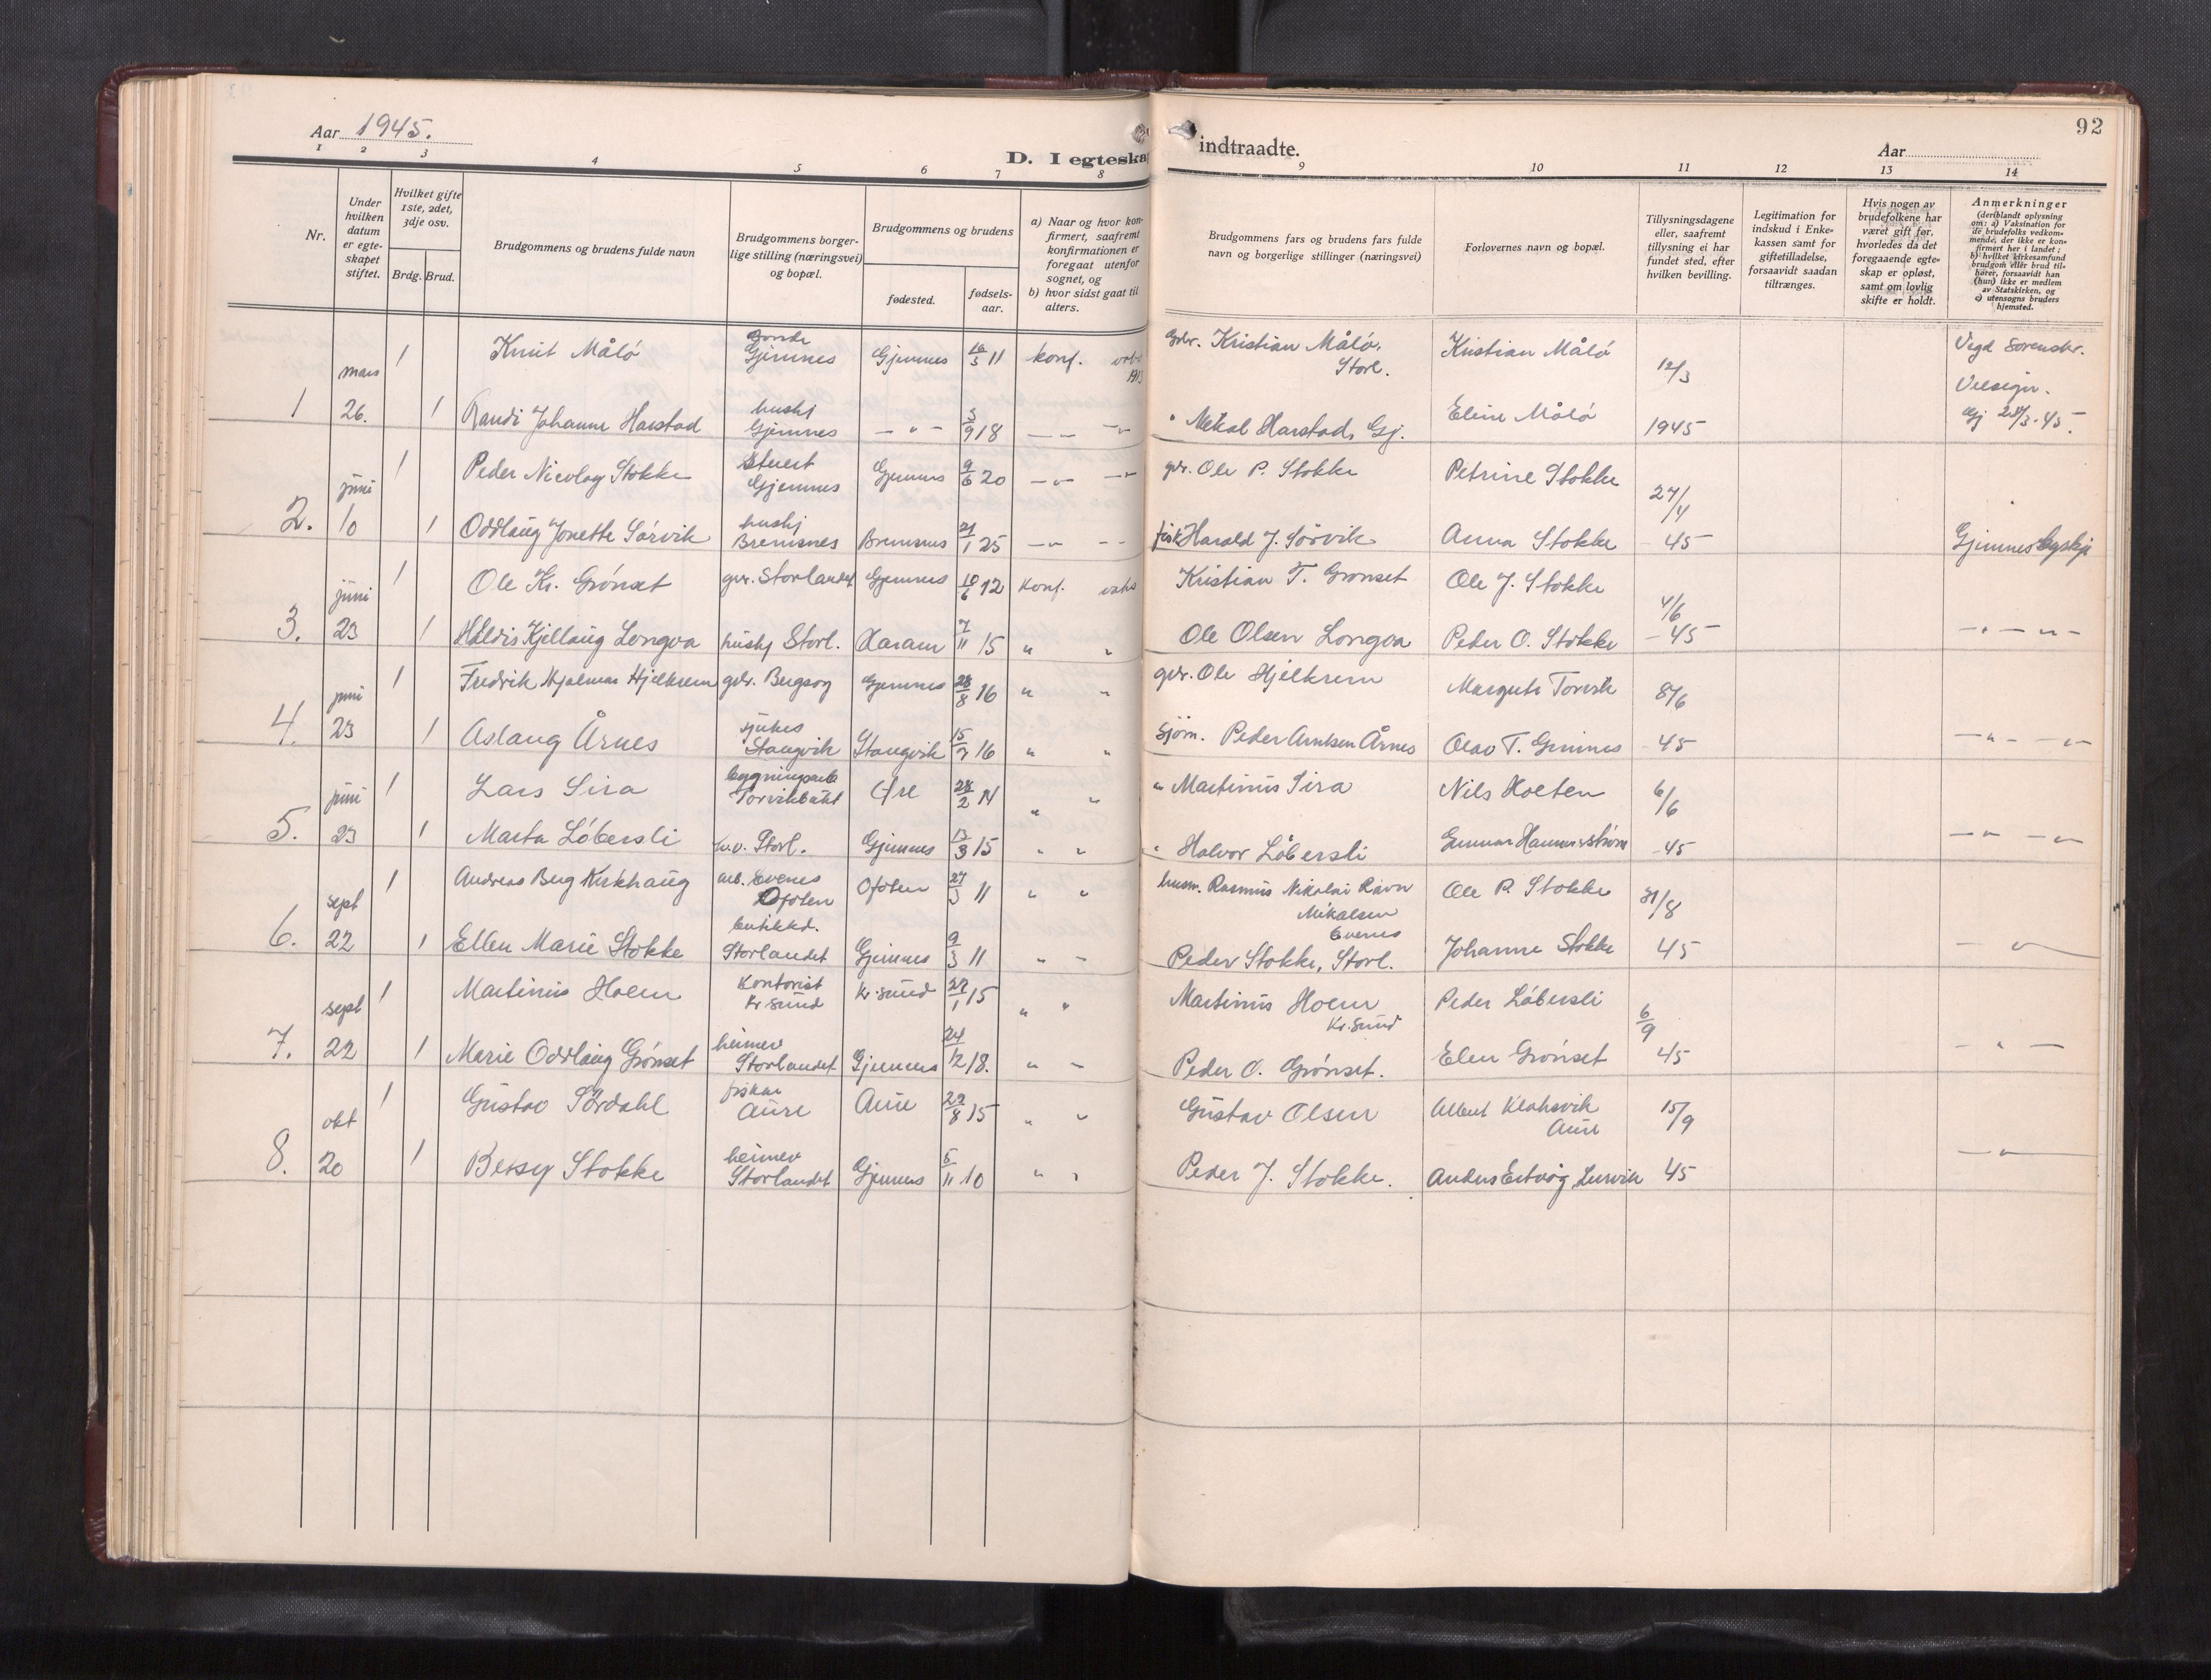 92
Aar 1945.
D. I egteska
indtraadte.
Aar
1 2 3 4 5 6 7 8 9 10 11 12 13 14
Nr.
Under hvilken datum er egte-skapet stiftet.
Hvilket gifte 1ste, 2det, 3dje osv.
Brdg. Brud.
Brudgommens og brudens fulde navn
Brudgommens borger-lige stilling (næringsvei) og bopæl.
Brudgommens og brudens
fødested.
fødsels-aar.
a) Naar og hvor kon-firmert, saafremt konfirmationen er foregaat utenfor sognet, og
b) hvor sidst gaat til alters.
Brudgommens fars og brudens fars fulde navn og borgerlige stillinger (næringsvei)
Forlovernes navn og bopæl.
Tillysningsdagene eller, saafremt tillysning ei har fundet sted, efter hvilken bevilling.
Legitimation for indskud i Enke-kassen samt for giftetilladelse, forsaavidt saadan tiltrænges.
Hvis nogen av brudefolkene har været gift før, hvorledes da det foregaaende egte-skap er opløst, samt om lovlig skifte er holdt.
Anmerkninger
(deriblandt oplysning om: a) Vaksination for de brudefolks vedkom-mende, der ikke er kon-firmert her i landet; b) hvilket kirkesamfund brudgom eller brud til-hører, forsaavidt han (hun) ikke er medlem av Statskirken, og c) utensogns bruders hjemsted.
mars 1 Knut Målö Gjemnes Gjemnes 11 konf. Gdr. Kristian Målö, Storl. Kristian Målö 12/3 Vigd Sorenskr.
1 26. 1 Randi Johanne Harstad hushj Gjemnes — " — 3/9 18 " Mekal Harstad, Gj. Eline Målö 1945 Velsign. Gj 28/3-45.
juni 1 Peder Nicolay Stokke Gjemnes Gjemnes 9/6 20 gdr. Ole P. Stokke Petrine Stokke 27/4
2. 10 1 Oddlaug Jonette Sörvik hushj Bremsnes Bremsnes 21/1 25 fisk Harald J. Sörvik Anna Stokke 45 Gjemnes
juni 1 Ole Kr. Grönset gdr. Storlandet Gjemnes 10/6 12 Konf. Kristian T. Grönset Ole J. Stokke 4/6
3. 23 1 Haldis Kjellaug Longva hushj Storl. Haram 7/11 15 " " Ole Olsen Longva Peder O. Stokke 45 — " — " —
juni 1 Fredrik Hjalmar Hjelkrem gdr. Bergsøy Gjemnes 28/8 16 " " gdr. Ole Hjelkrem Margrete Torvik 8/6
4. 23 1 Aslaug Årnes Stangvik Stangvik 16 " " Sjöm. Peder Arntsen Årnes Olav T. Gimnes 45 — " — " —
juni 1 Lars Sira Torvikbukt Öre 28/2 14 " " " Martinus Sira Nils Holten 6/6
5. 23 1 Marta Löbersli Storl. Gjemnes 13/3 15 " " " Halvor Löbersli Gunnar Hammerström 45 — " — " —
sept 1 Andreas Berg Kirkhaug arb. Evenes Ofoten Ofoten 27/3 11 " " Rasmus Nikolai Ravn Mikalsen Evenes Ole P. Stokke 31/8
6. 22 1 Ellen Marie Stokke butikkd. Storlandet Gjemnes 9/3 11 " " Peder Stokke, Storl. Johanne Stokke 45 — " —
sept 1 Martinus Hoem Kontorist Kr.sund Kr.sund 22/1 15 " " Martinus Hoem Kr.sund Peder Löbersli 6/9
7. 22 1 Marie Oddlaug Grönset heimev Storlandet Gjemnes 24/12 18. " " Peder O. Grönset. Elen Grönset 45 — " —
okt 1 Gustav Sördahl fiskar Aure Aure 22/8 15 " " Gustav Olsen Albert Klaksvik Aure 15/9
8. 20 1 Betsy Stokke heimev Storlandet Gjemnes 5/11 10 " " Peder J. Stokke. Anders Ertvåg, Leirvik 45 — " —